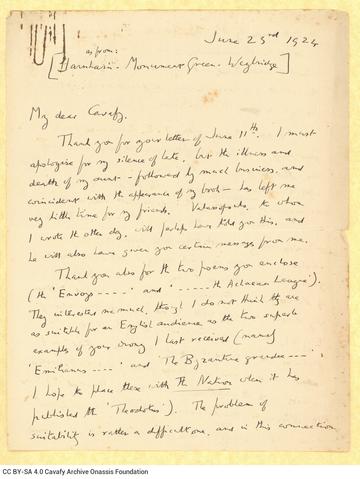 June 23rd 1924
as from:
[Harnham. Monument Green. Weybridge]
My dear Cavafy.
Thank you for your letter of June 11th. I must
apologise for my silence of late, but the illness and
death of my aunt - followed by much business, and
coincident with the appearance of my book - has left me
very little time for my friends. Valassopoulo, to whom
I wrote the other day, will perhaps have told you this, and
he will also have given you certain message from me.
Thank you also for the two poems you enclose
(the 'Envoys ----' and '----- the Achaean League').
They interested me much, though I do not think they are
as suitable for an English audience as the two superb
examples of your I last received (namely
'Emilianus ----' and 'The Byzantine grandee ---'
I hope to place these with The Nation when it has
published the 'Theodotus'). The problem of
suitability is rather a difficult one, and in this connection
CC BY-SA 4.0 Cavafy Archive Onassis Foundation